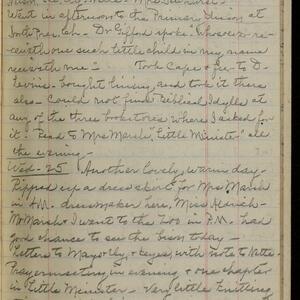 Went in afternoon to the Primary Union at
North Church - Dr Gifford spoke. Whoso ever re-
ceiveth one such little child in my name
receiveth me - Took Cape & fur to D-
Levins - bought lining, and took it there
also - Could not find Biblical Idylls at
any of the three bookstores where I asked for
it. Read to Mrs Marsh, "Little Minister" all
the evening -
Wed - 25 Another lovely, warm day -
Ripped up a dress skirt for Mrs Marsh
in A.M. dressmaker here, Miss
McMarsh & I went to the Zoo in P.M. had
good chance to see the bison today -
Letters to & with note to
Prayer meeting, in evening, & one chapter
in Little Minister - Very little knitting